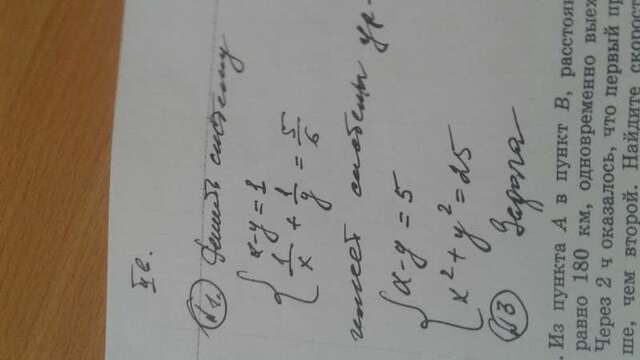 II в.
№1. Решить систему
x-y=1
1/x + 1/y = 5/6
имеет система ур-
x-y=5
x²+y²=25
№3 Задача
Из пункта A в пункт B, расстоян
равно 180 км, одновременно выех
Через 2 ч оказалось, что первый пр
ше, чем второй. Найдите скорост